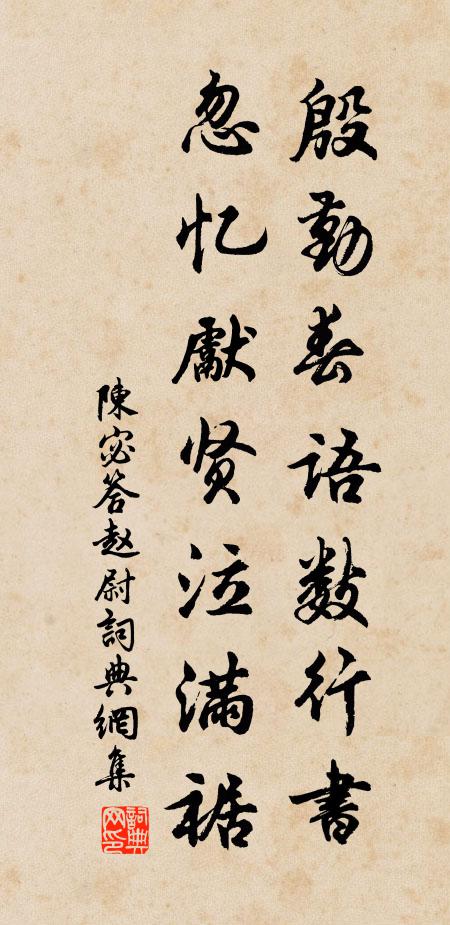 殷勤春语数行书
忽忆獻贤泣满裾
陳宓答赵尉詞典網集
詞典网印